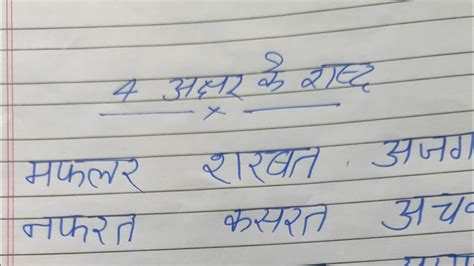 4 अक्षर के शब्द
मफलर शरबत अजग
नफरत कसरत अच